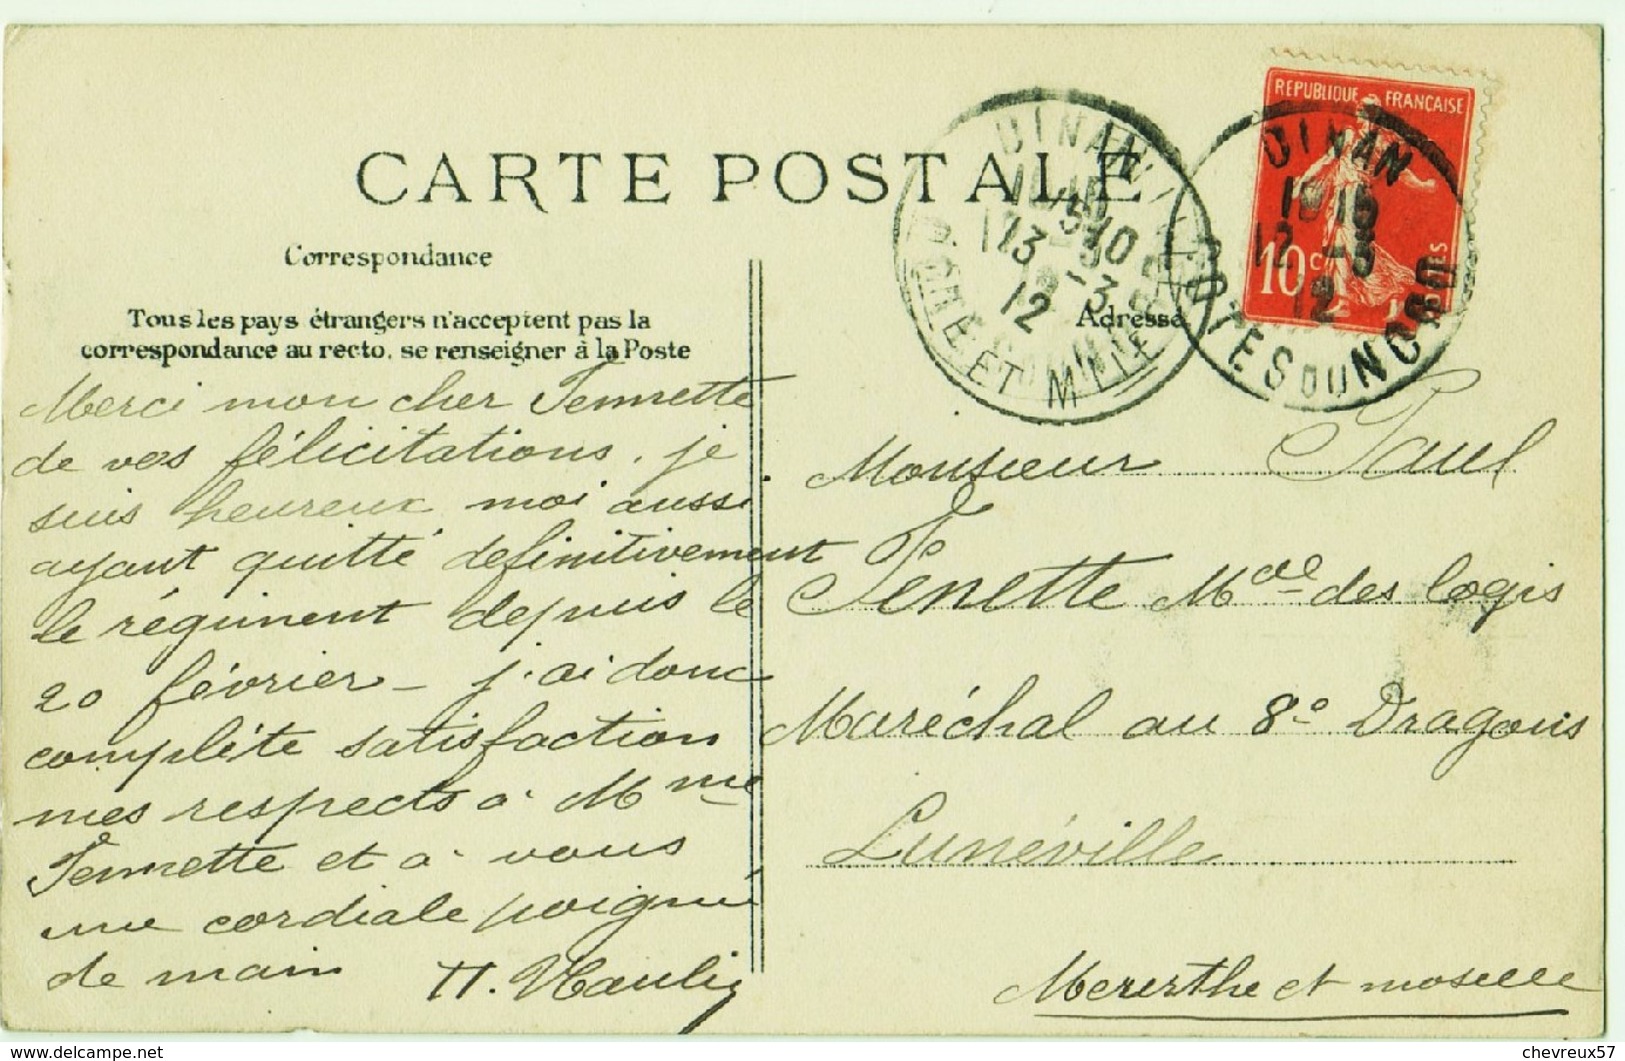 CARTE POSTALE
Correspondance
Tous les pays étrangers n'acceptent pas la
correspondance au recto, se renseigner à la Poste
Adresse
REPUBLIQUE FRANÇAISE
10 c
POSTES
DINAN
12 -3
12
COTES DU NORD
DINAN
13 -3
12
Merci mon cher Tennette
de vos félicitations. je
suis heureux moi aussi
ayant quitté definitivement
le régiment depuis le
20 février - j'ai donc
complète satisfaction
mes respects à Mme
Tennette et à vous
une cordiale poignée
de main H.
Monsieur Paul
Tenette Mal des logis
Maréchal au 8e Dragons
Lunéville
Mererthe et moselle
delcampe.net
chevreux57